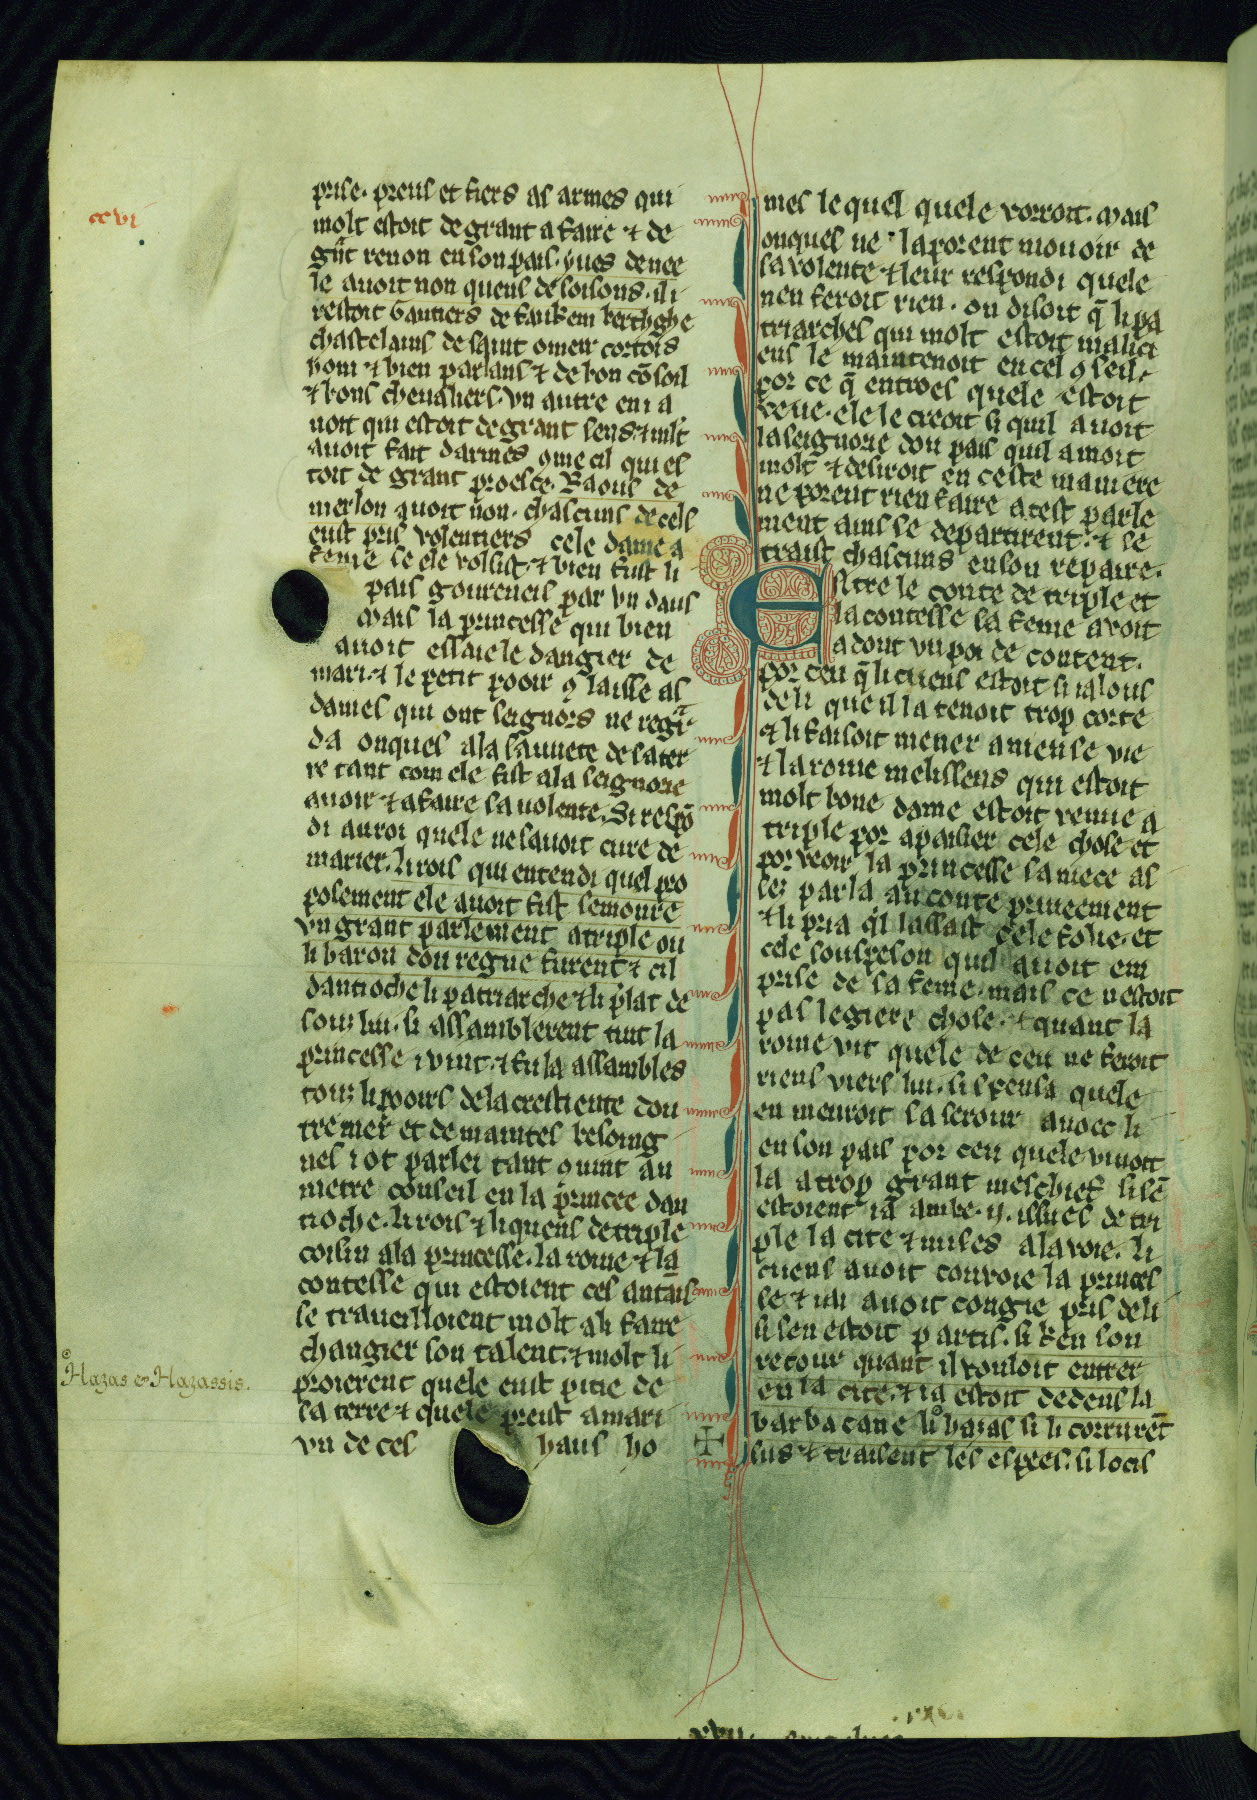 cc vi
prise. preus et fiers as armes qui
molt estoit de grant afaire ⁊ de
gnt renon en son pais. yues de nee
le auoit non queus de soisons. ili
restoit Gautiers de faukem berthghe
chastelains de saint omeir cortois
hom ⁊ bien parlans ⁊ de bon cōsoil
⁊ bons cheualiers. vn autre en i a
uoit qui estoit de grant sens. ⁊ mlt
auoit fait darmes 9me cil qui es
toit de grant proesce. Raous de
merlon auoit non. chascuns de cels
eust pris volentiers cele dame a
feme se ele vossist. ⁊ bien fust li
pais gouerneis par vn daus
Mais la princesse qui bien
auoit essaie le dangier de
mari. ⁊ le petit pooir 9 laisse as
dames qui ont seignors ne regar
da onques ala sauuete de sa ter
re tant com ele fist ala seignorie
auoir ⁊ a faire sa uolente. Si respō
di au roi quele ne sauoit cure de
marier. li rois qui entendi quel pro
posement ele auoit fist semoure
vn grant parlement a triple ou
li baron dou regne furent ⁊ cil
dantioche li patriarche ⁊ li plat de
soin lui. si assamblerent tuit la
princesse i vint. ⁊ fu la assambles
touz li pooirs de la crestiente dou
tremer et de maintes besoing
nes i ot parlei tant quint au
metre conseil en la princee dan
tioche. li rois ⁊ li queus de triple
cosin ala princesse. la roine ⁊ la
contesse qui estoient ces antains
se traueilloient molt ali faire
changier son talent. ⁊ molt li
proierent quele eust pitie de
la terre ⁊ quele preust a mari
vn de ces haus ho
Hazas & Hazassis.
mes le quel quele vorroit. Mais
onques ne la porent mouoir de
sa volente ⁊ leur respondi quele
nen feroit rien. on disoit q̄ li pa
triarches qui molt estoit malici
eus le maintenoit en cel 9seil.
por ce q̄ entroes quele estoit
veue. ele le creoit si quil auoit
la seignorie dou pais quil amoit
molt ⁊ desiroit en ceste maniere
ne porent rien faire a cest parle
ment ains se departirent. ⁊ se
traist chascuns en son repaire.
Entre le conte de triple et
la contesse sa feme auoit
adont vn poi de content.
por ceu q̄ li cuens estoit si ialous
de li que il la tenoit trop corte
⁊ li faisoit mener amense vie
⁊ la roine melissens qui estoit
molt bone dame estoit venue a
triple por apaisier cele chose et
por veoir la princesse sa niece as
sez parla au conte priueement
⁊ li pria ql laissast cele folie. et
cele souspeson quil auoit em
prise de sa feme. mais ce nestoit
pas legiere chose. ⁊ quant la
roine vit quele de ceu ne feroit
riens viers lui. si spensa quele
en menroit sa serour auoec li
en son pais por ceu quele viuoit
la a trop grant meschief. si sē
estoient ia ambe. ij. issues de tri
ple la cite ⁊ mises a la voie. li
cuens auoit conuoie la princes
se ⁊ iai auoit congie pris de li
si sen estoit partis. si ken son
retour quant il vouloit entrer
en la cite. ⁊ ia estoit dedens la
barbacane li hasas si li corrurēt
sus ⁊ traisent les espees. si locis